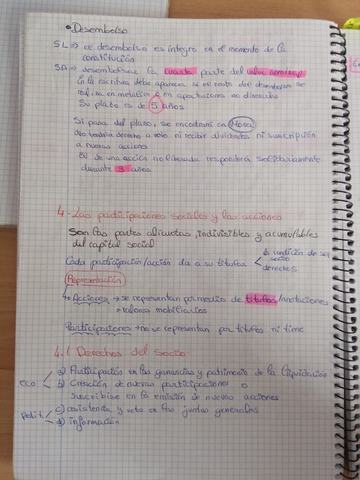 • Desembolso
SL ⇒ el desembolso es íntegro en el momento de la
constitución
SA ⇒ desembolsar la cuarta parte del valor nominal
En la escritura debe aparecer si el resto del desembolso se
realiza en metálico o en aportaciones no dinerarias
Su plazo es de 5 años
Si pasa del plazo, se encontrará en Mora
No tendrá derecho a voto ni recibir dividendos ni suscripción
a nuevas acciones
de una acción no liberada responderá solidariamente
durante 3 años
4.- Las participaciones sociales y las acciones
Son las partes alícuotas, indivisibles y acumulables
del capital social
Cada participación/acción da a su titular
la condición de ser
socio
derechos
Representación
Acciones → se representan por medio de títulos/anotaciones
valores mobiliarios
Participaciones → no se representan por títulos ni tiene
4.1 Derechos del socio
eco
a) Participación en las ganancias y patrimonio de la liquidación
b) Creación de nuevas participaciones o
suscribirse en la emisión de nuevas acciones
polít.
c) asistencia y voto en las juntas generales
d) información